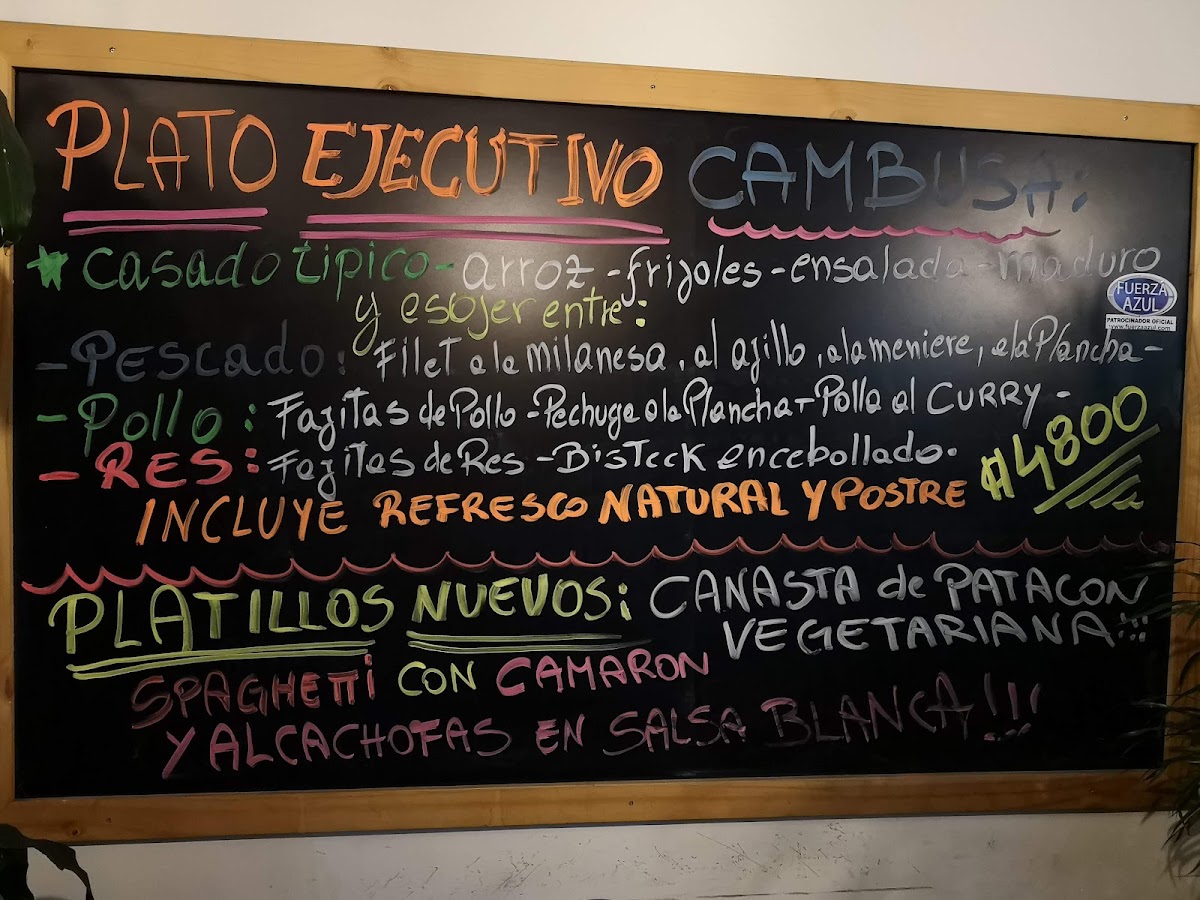 PLATO EJECUTIVO CAMBUSA:
casado tipico - arroz - frijoles - ensalada - maduro
y esojer entre:
- Pescado: Filet a la milanesa, al ajillo, a la meniere, a la Plancha -
- Pollo: Fajitas de Pollo - Pechuga a la Plancha - Pollo al CURRY -
- RES: Fajitas de Res - BisTeck encebollado.
₡4800
INCLUYE REFRESCO NATURAL Y POSTRE
PLATILLOS NUEVOS: CANASTA de PATACON
VEGETARIANA!!!
SPAGHETTI CON CAMARON
Y ALCACHOFAS EN SALSA BLANCA!!!
FUERZA
AZUL
PATROCINADOR OFICIAL
www.fuerzaazul.com